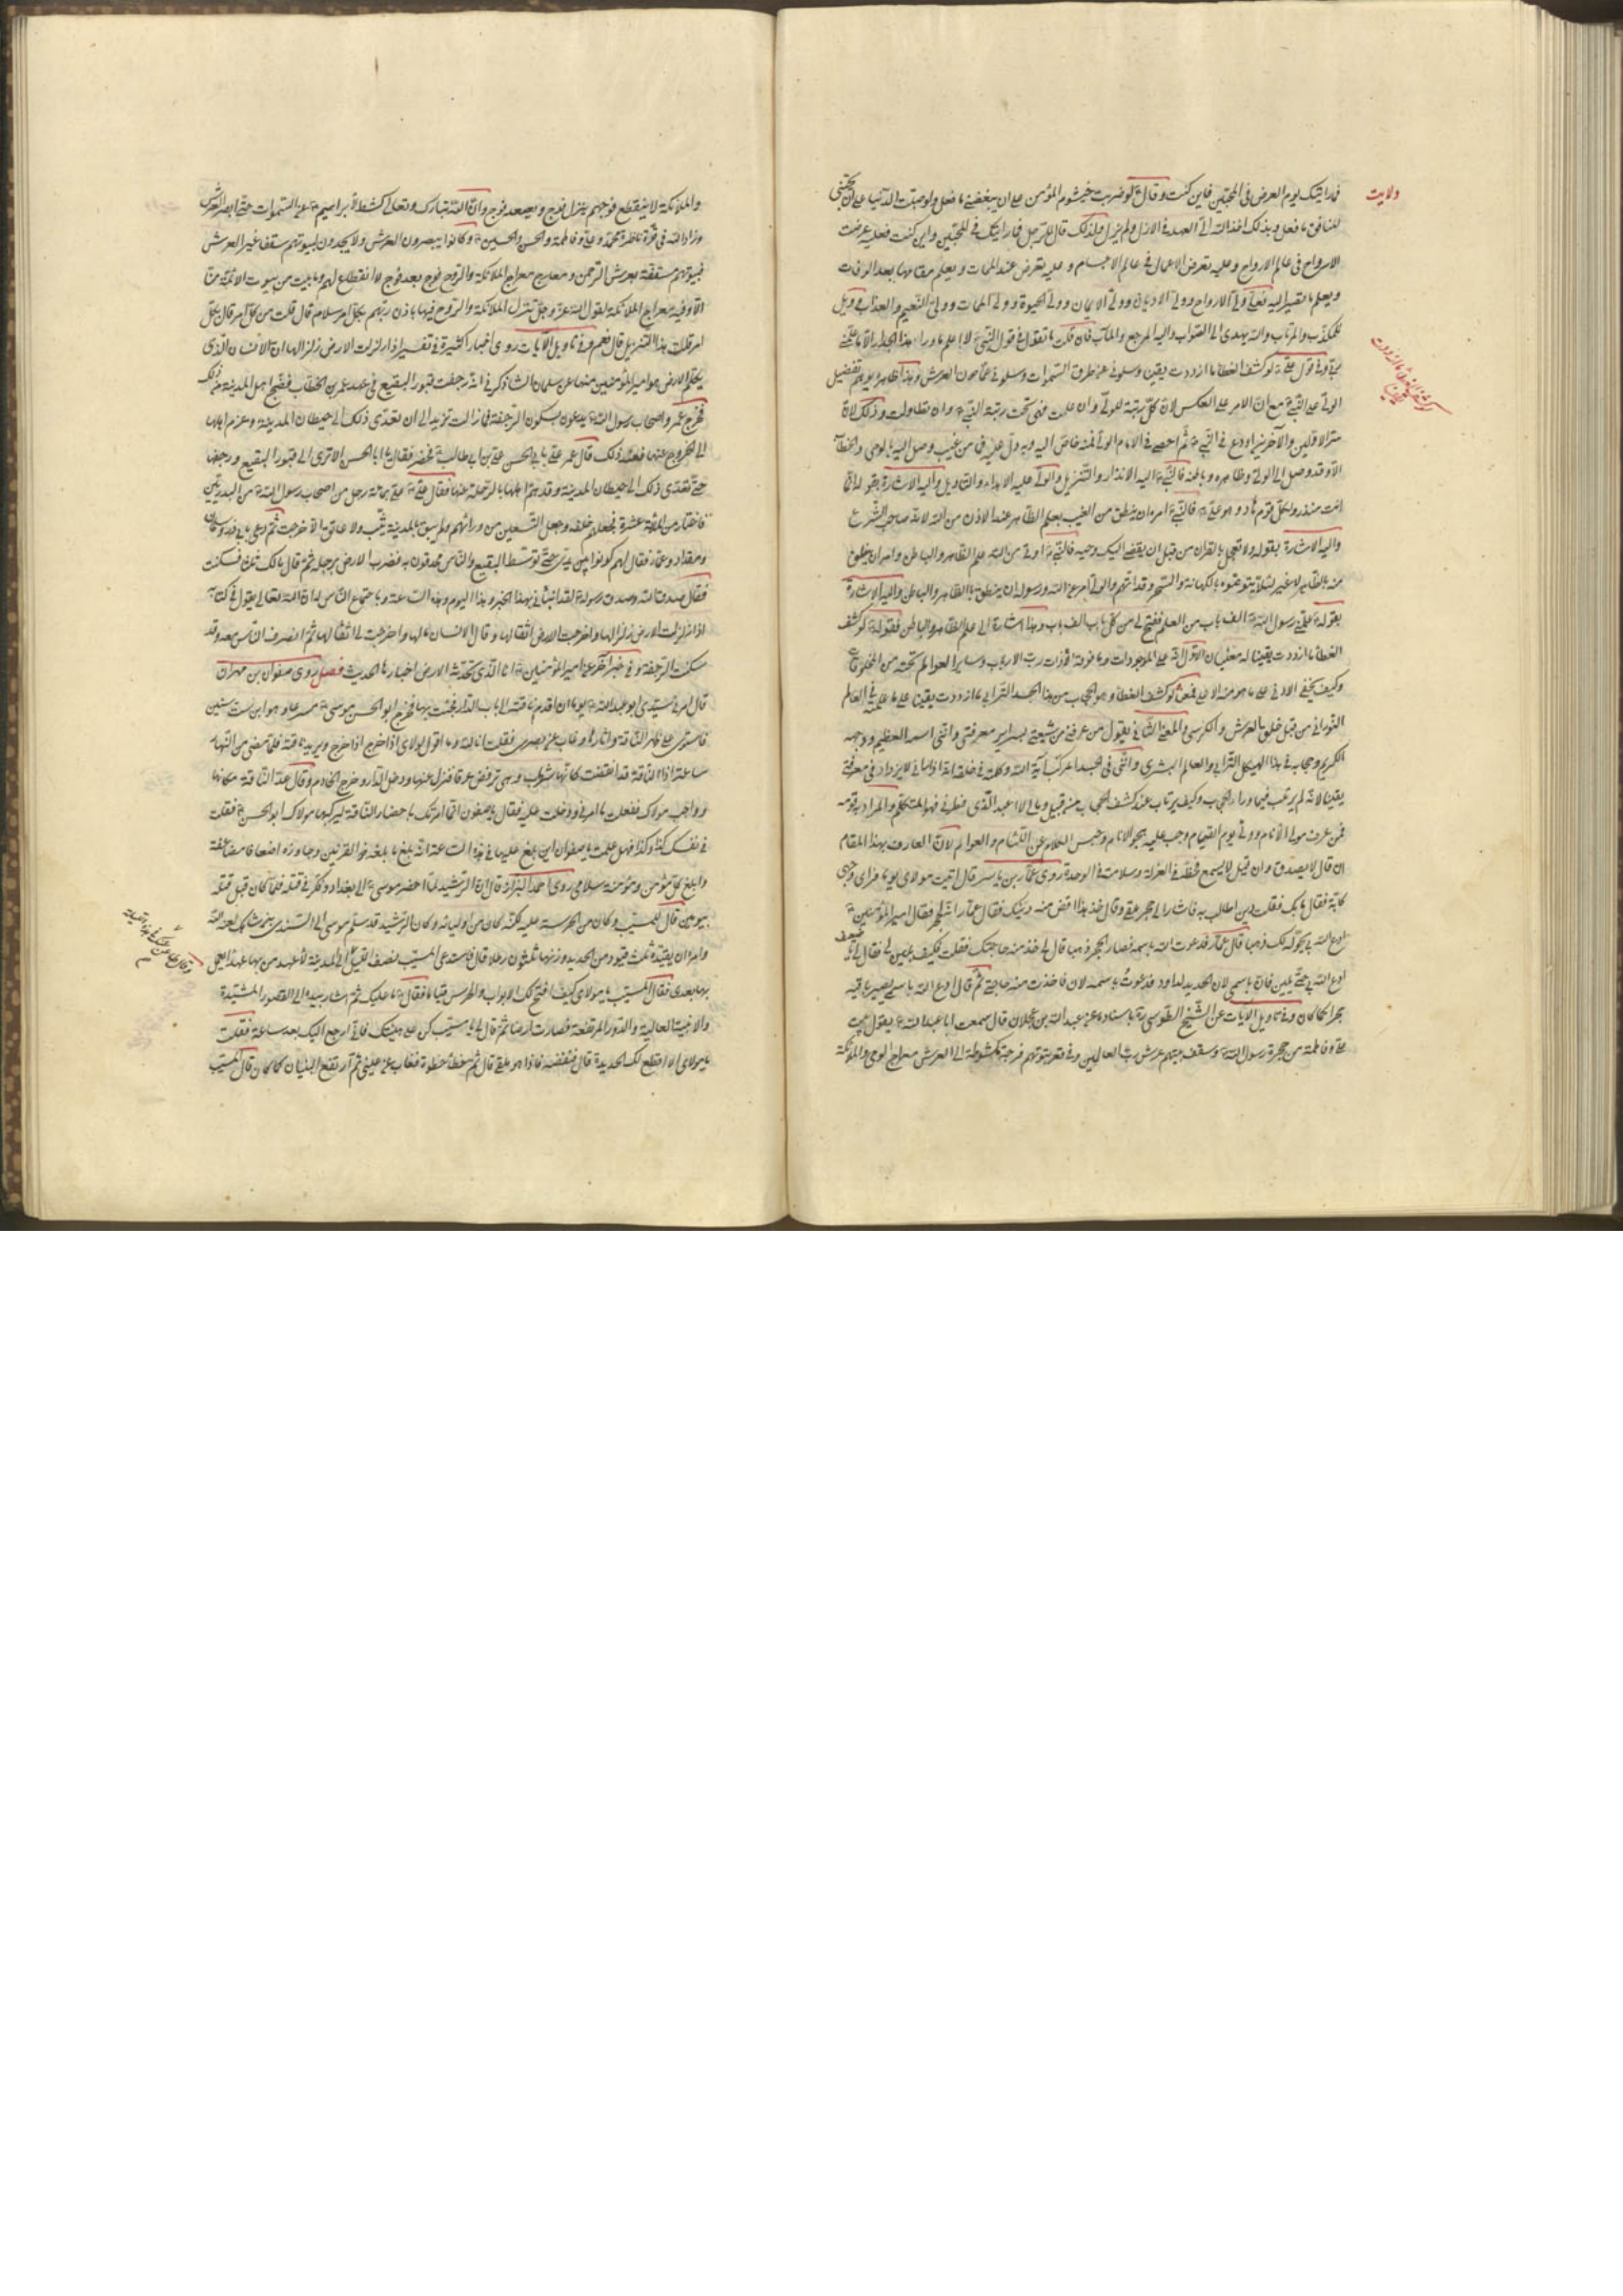 فما رايتك يوم العرض في المحبين فاين كنت وقال لو ضربت خيشوم المؤمن على ان يبغضني ما فعل ولو صببت الدنيا على
للمنافق ما فعل وبذلك اخذ الله لي العهد في الازل ولم يزل ولذلك قال للرجل فما رايتك في المحبين واين كنت فعليه عرضت
الارواح في عالم الارواح وعليه تعرض الاعمال في عالم الاجسام وعليه تعرض عند الممات ويعلم مقامها بعد الوفات
ويعلم ما تصير اليه فعلي ولي الارواح وولي الاديان وولي الايمان وولي الحيوة وولي الممات وولي النعيم والعذاب فويل
للمكذب والمرتاب والله يهدي الى الصواب واليه المرجع والمآب فان قلت ما تقول في قول النبي لا اعلم ما وراء هذا الجدار الا ما علمني
ربي وفي قول علي لو كشف الغطا ما ازددت يقينا وسلوني عن طرق السموات وسلوني عما دون العرش وهذا ظاهره يوهم تفضيل
الولي على النبي مع ان الامر على العكس لان كل رتبة للولي وان علت فهي تحت رتبة النبي وان تطاولت وذلك لان
سر الاولين والآخرين اودع في النبي ثم احصي في الامام الولي
الا وقد وصل الى الولي ظاهره وباطنه فالنبي اليه الانذار والتنزيل والولي عليه الهداء والتاويل واليه الاشارة بقوله انما
انت منذر ولكل قوم هاد وهو علي فالنبي امر ان ينطق من الغيب بعلم الظاهر عند الاذن من الله لانه صاحب الشرع
واليه الاشارة بقوله ولا تعجل بالقران من قبل ان يقضى اليك وحيه فالنبي اوتي من الله علم الظاهر والباطن وامر ان ينطق
منه بالظاهر لا غير لئلا يتهموه بالكهانة والسحر وقد اتهم والولي امر عن الله ورسوله ان ينطق بالظاهر والباطن واليه الاشارة
بقوله علمني رسول الله الف باب من العلم ففتح لي من كل باب الف باب وهذا اشارة الى علم الظاهر والباطن فقوله لو كشف
الغطا ما ازددت يقينا له معنيان الاول انه على الموجودات وما فوقه الا ذات رب الارباب وساير العوالم تحته من المخلوقات
وكيف يخفى الادنى على ما هو منه الاعلى فمعنى لو كشف الغطا وهو الحجاب من هذا الجسد الترابي ما ازددت يقينا على ما علمته في العالم
النوراني من قبل خلق العرش والكرسي والمعنى الثاني يقول من عرفني من شيعتي بسراير معرفتي وانني اسمه العظيم ووجهه
الكريم وحجابه في هذا الهيكل الترابي والعالم البشري وانني في الجسد المركب آية الله وكلمته في خلقه اذا راني لا يزداد في معرفتي
يقينا لانه لم يرتب فيما وراء الحجاب وكيف يرتاب عند كشف الحجاب من قبل
فمن عرف مولى الانام وولي يوم القيام وجب عليه هجر الانام وحبس الكلام عن اللئام والعوام لان العارف بهذا المقام
ان قال لا يصدق وان قيل لا يسمع فحظه في العزلة وسلامته في الوحدة روى عمار بن ياسر قال اتيت مولاي يوما فراى في وجهي
كآبة فقال ما بك فقلت دين اطالب به فاشار الى حجر ملقى وقال خذ هذا اقض منه دينك فقال عمار انه لحجر فقال امير المؤمنين
ادع الله بي يحوله لك ذهبا قال عمار فدعوت الله باسمه فصار الحجر ذهبا قال لي خذ منه حاجتك فقلت فكيف يلين لي فقال لي يا ضعيف
ادع الله بي حتى يلين فان باسمي لان الحديد لداود فدعوت باسمه لان فاخذت منه حاجتي ثم قال ادع الله باسمي يصير باقيه
حجرا كما كان وفي تاويل الآيات عن الشيخ الطوسي باسناده عن عبد الله بن عجلان قال سمعت ابا عبد الله يقول بيت
علي وفاطمة من حجرة رسول الله وسقف بيتهم عرش رب العالمين وفي قعر بيوتهم فرجة مكشوطة الى العرش معراج الوحي والملائكة
ولايت
والملائكة لا ينقطع فوجهم ينزل فوج ويصعد فوج وان الله تبارك وتعالى كشط لابراهيم عن السموات حتى ابصر العرش
وزاد الله في قوة ناظرة محمد وعلي وفاطمة والحسن والحسين وكانوا يبصرون العرش ولا يجدون لبيوتهم سقفا غير العرش
فبيوتهم مسقفة بعرش الرحمن ومعارج معراج الملائكة والروح فوج بعد فوج لا انقطاع لهم وما بيت من بيوت الائمة منا
الا وفيه معراج الملائكة لقول الله عز وجل تنزل الملائكة والروح فيها باذن ربهم بكل امر سلام قال قلت من كل امر قال بكل
امر قلت هذا التنزيل قال نعم وفي تاويل الآيات روى اخبار كثيرة في تفسير اذا زلزلت الارض زلزالها ان الانسان الذي
يكلم الارض هو امير المؤمنين منها عن سلمان الشاذكوني انه رجفت قبور البقيع في عهد عمر بن الخطاب فضج اهل المدينة من ذلك
فخرج عمر واصحاب رسول الله يدعون بسكون الرجفة فما زالت تزيد الى ان تعدى ذلك الى حيطان المدينة وعزم اهلها
الى الخروج عنها فعند ذلك قال عمر علي بابي الحسن علي بن ابي طالب فحضر فقال يا ابا الحسن الا ترى الى قبور البقيع ورجفها
حتى تعدى ذلك الى حيطان المدينة وقد هم اهلها بالرحلة عنها فقال علي علي بمائة رجل من اصحاب رسول الله من البدريين
فاختار من المائة عشرة فجعلهم خلفه وجعل التسعين من ورائهم ولم يبق بالمدينة ثيب ولا عاتق الا خرجت ثم دعى بابي ذر وسلمان
ومقداد وعمار فقال لهم كونوا بين يدي حتى توسط البقيع والناس محدقون به فضرب الارض برجله ثم قال مالك ثلاثا فسكنت
فقال صدق الله وصدق رسوله لقد انبأني بهذا الخبر وهذا اليوم وهذه الساعة وباجتماع الناس له ان الله تعالى يقول في كتابه
اذا زلزلت الارض زلزالها واخرجت الارض اثقالها وقال الانسان مالها واخرجت لي اثقالها ثم انصرف الناس معه وقد
سكنت الرجفة وفي خبر آخر عن امير المؤمنين انا الذي تحدثه الارض اخبارها الحديث فصل روى صفوان بن مهران
قال امرني سيدي ابو عبد الله يوما ان اقدم ناقته الى باب الدار فجئت بها فخرج ابو الحسن موسى مسرعا وهو ابن ست سنين
فاستوى على ظهر الناقة واثارها وغاب عن بصري فقلت انا لله وما اقول لمولاي اذا خرج يريد ناقته فلما مضى من النهار
ساعة اذا الناقة قد انقضت كانها شهاب وهي ترفض عرقا فنزل عنها ودخل الدار وخرج الخادم وقال اعد الناقة مكانها
واجب مولاك ففعلت ما امرني ودخلت عليه فقال يا صفوان انما امرتك باحضار الناقة ليركبها مولاك ابو الحسن فقلت
في نفسك كذا وكذا فهل علمت يا صفوان اين بلغ عليها في هذه الساعة انه بلغ ما بلغه ذو القرنين وجاوزه اضعافا مضاعفة
وابلغ كل مؤمن ومؤمنة سلامي روى احمد البزاز قال ان الرشيد لما احضر موسى الى بغداد وفكر في قتله فلما كان قبل قتله
بيومين قال للمسيب وكان من الحرسة عليه لكنه كان من اوليائه وكان الرشيد قد سلم موسى الى السندي بن شاهك لعنه الله
وامره ان يقيده بثلث قيود من الحديد وزنها ثلثون رطلا قال فاستدعى المسيب نصف الليل الى المدينة لاعهد من بها عهدا يعمل
بها بعدي فقال المسيب يا مولاي كيف افتح لك الابواب والحرس قيام فقال ما عليك ثم اشار بيده الى القصور المشيدة
والابنية العالية والدور المرتفعة فصارت ارضا ثم قال لي يا مسيب كن على هيئتك فاني ارجع اليك بعد ساعة فقلت
يا مولاي الا اقطع لك الحديدة قال فنفضه فاذا هو ملقى قال ثم خطا خطوة فغاب عن عيني ثم ارتفع البنيان كما كان قال المسيب